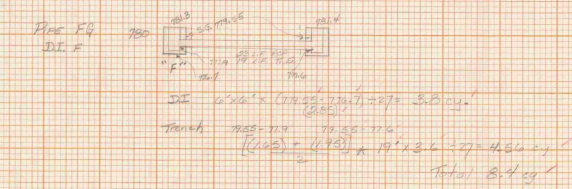 PIPE FG
D.I. F
780
781.8
S.G. 779.55
781.4
"F"
776.7
77.9
77.6
DI 6' x 6' x (79.55 - 776.7) ÷ 27 = 3.8 cy
(2.85)
Trench 79.55 - 77.9 79.55 - 77.6
[(1.65) + (1.95)] x 19' x 3.6' ÷ 27 = 4.56 cy
2
Total 8.4 cy